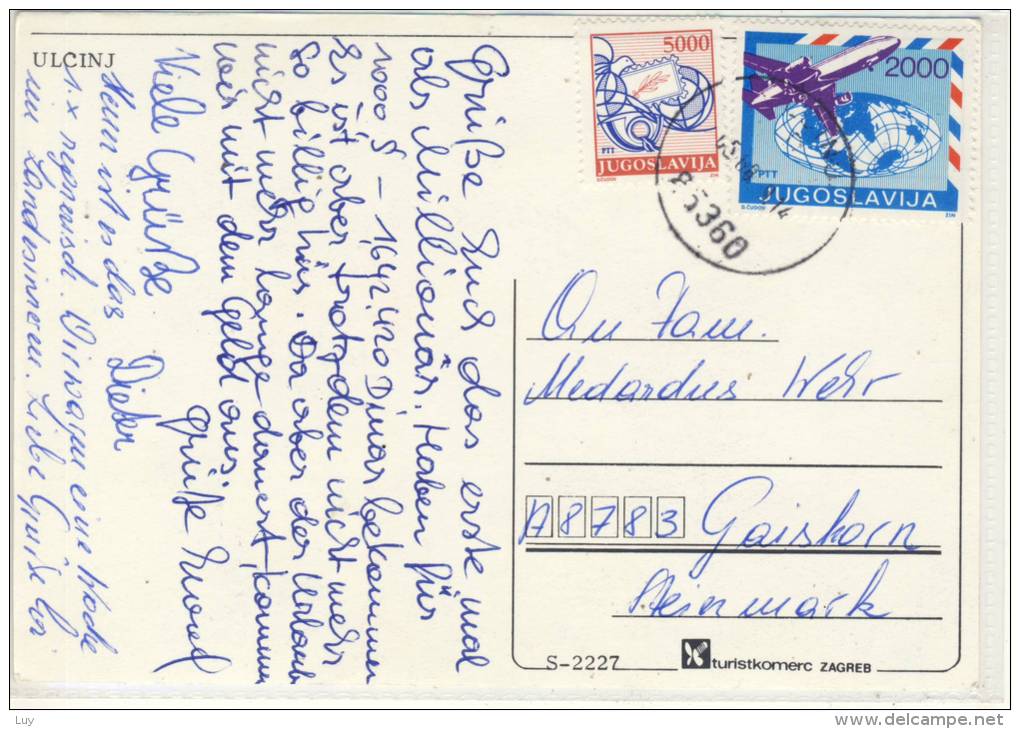 ULCINJ
Grüße Euch das erste mal
als Millionär. Haben für
1000 S - 1,642.420 Dinar bekommen
Es ist aber trotzdem nicht mehr
so billig hier. Da aber der Urlaub
nicht mehr lange dauert, kommen
wir mit dem Geld aus.
grüße
Viele Grüße
Dieter
Heuer ist es das
1. x regnerisch. Wir waren eine Woche
im Landesinneren. Liebe Grüße
5000
PTT
JUGOSLAVIJA
2000
PTT
JUGOSLAVIJA
85360
An Fam.
Medardus Wehr
A8783 Gaishorn
Steiermark
S-2227
turistkomerc ZAGREB
Luy
www.delcampe.net